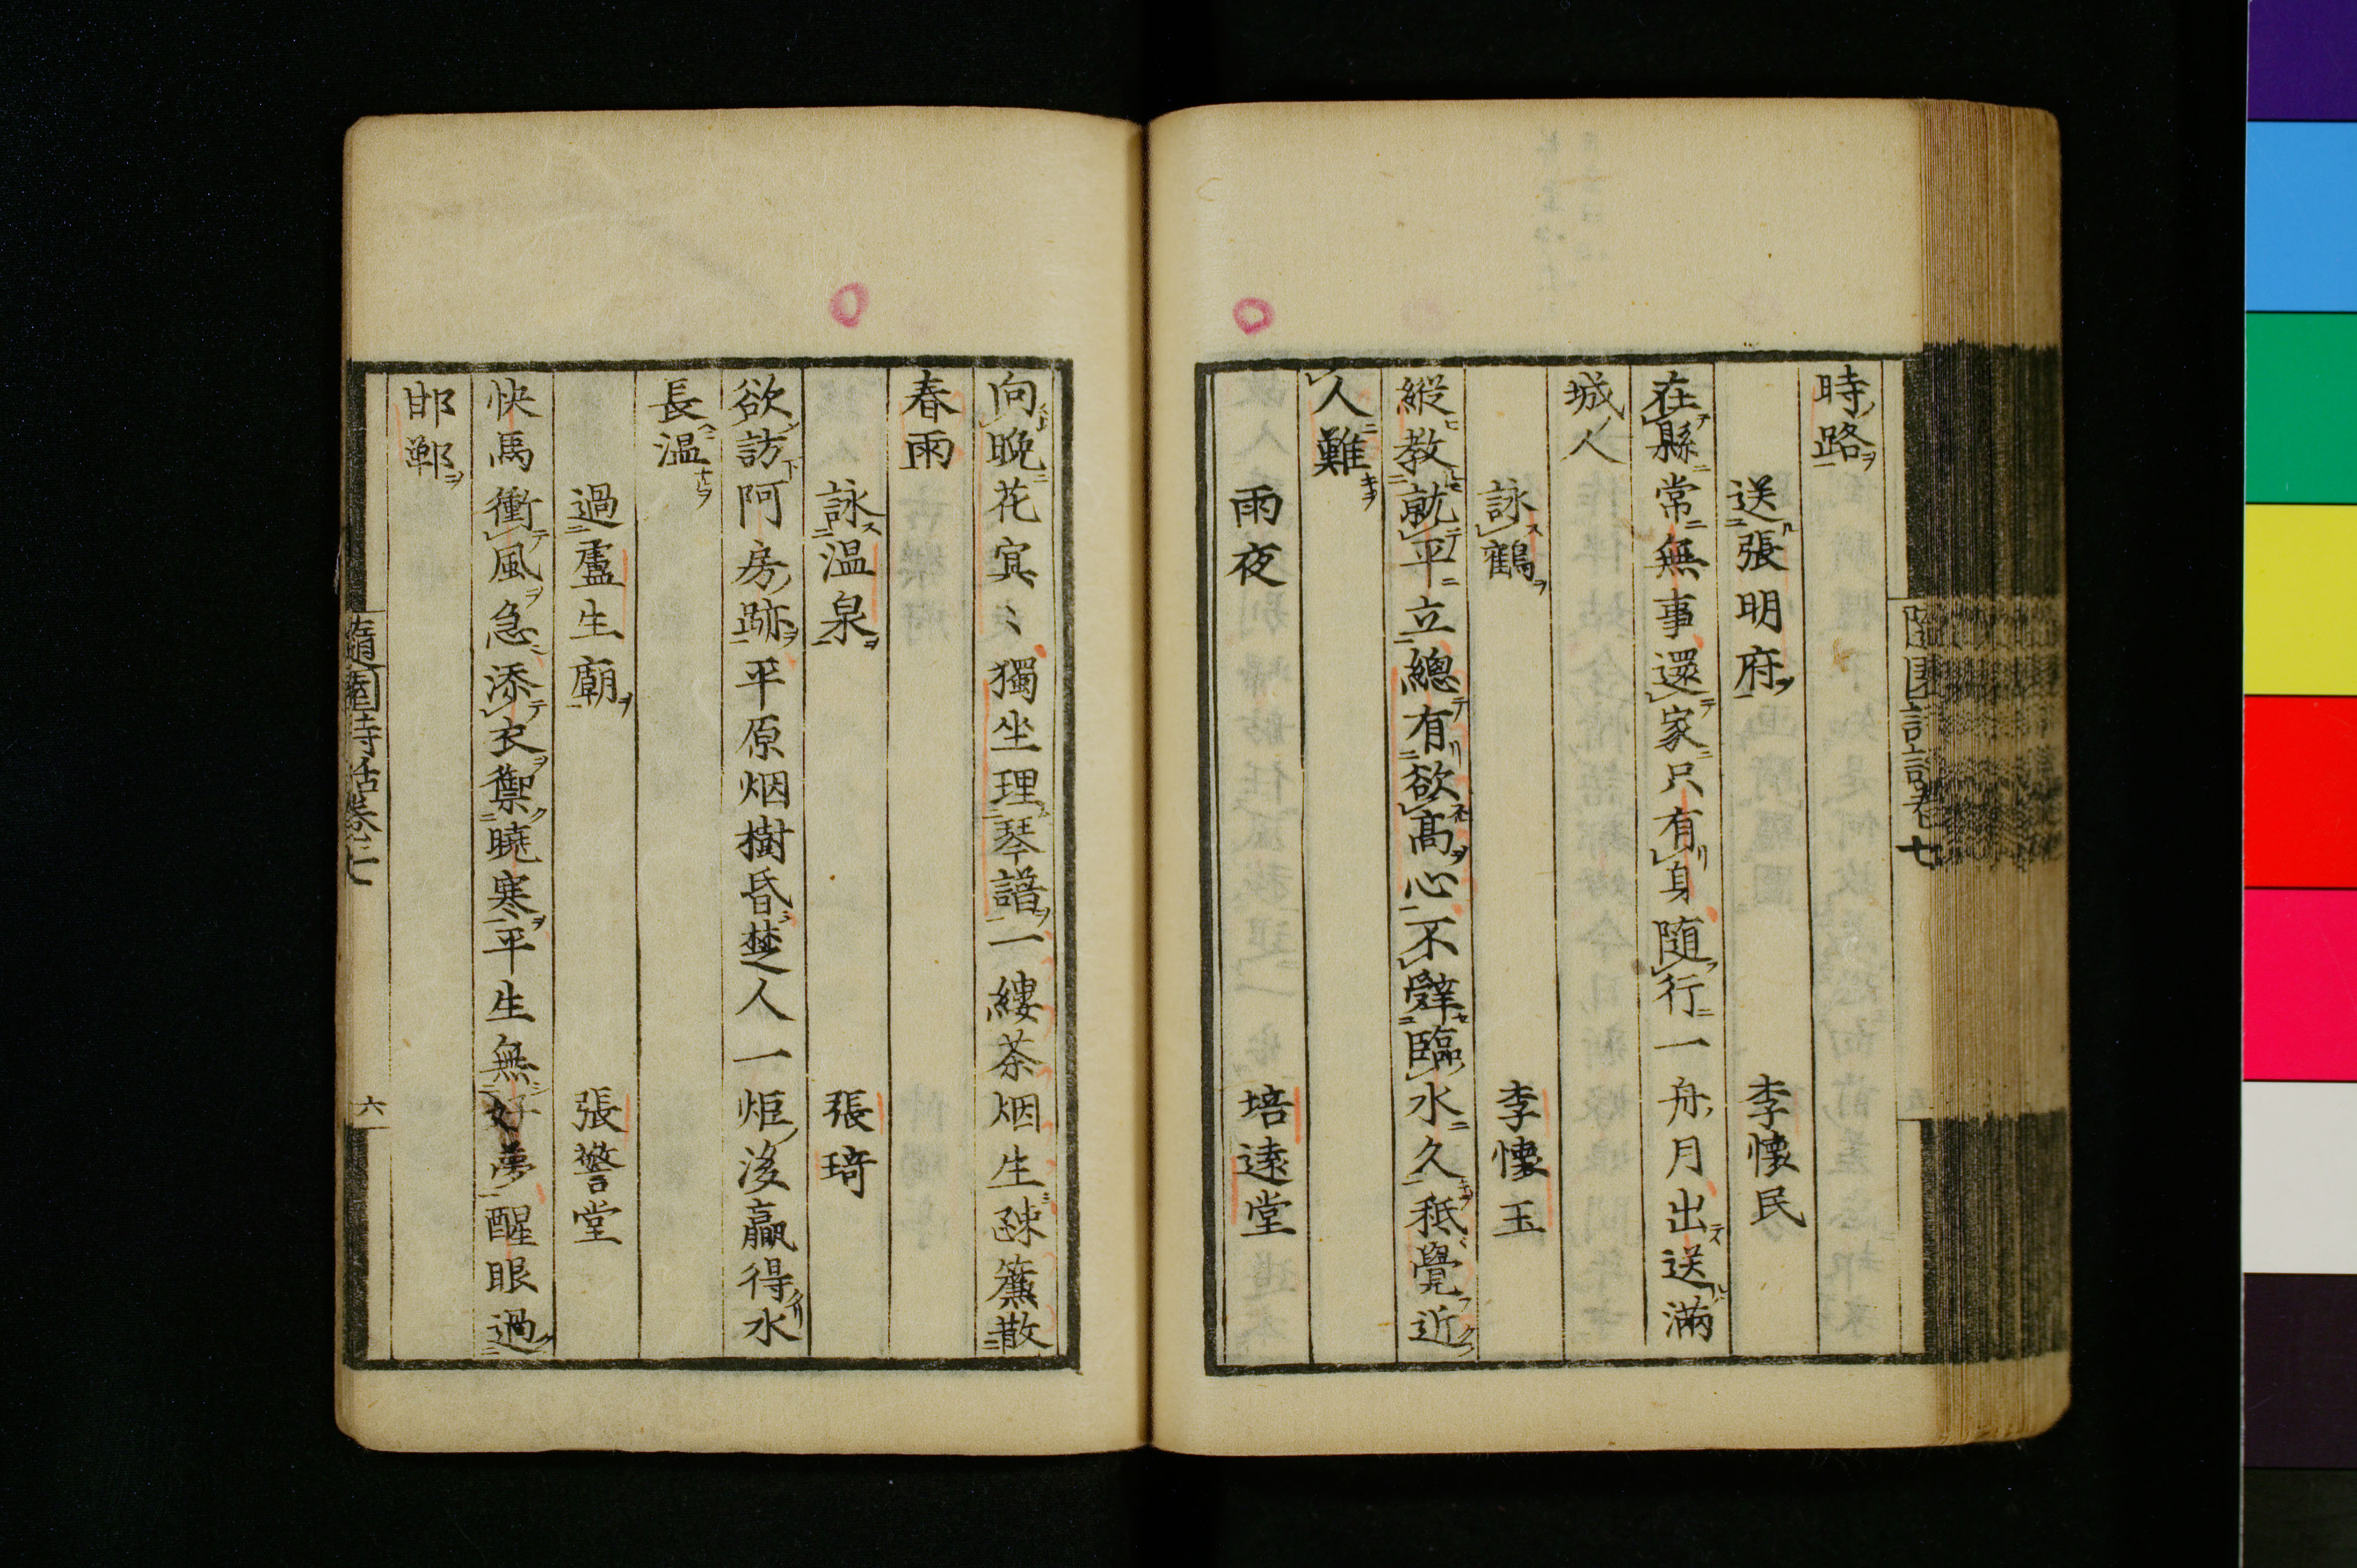 時路
送張明府 李懐民
在縣常無事還家只有身随行一舟月出送滿
城人
詠鶴 李懐玉
縱教就平立總有欲高心不辭臨水久秪覺近
人難
雨夜 培遠堂
向晚花冥〻獨坐理琴譜一縷茶烟生疎簾散
春雨
詠温泉 張琦
欲訪阿房跡平原烟樹昏楚人一炬後贏得水
長温
過盧生廟 張警堂
快馬衝風急添衣禦曉寒平生無好夢醒眼過
邯鄲
隨園詩話卷七
六